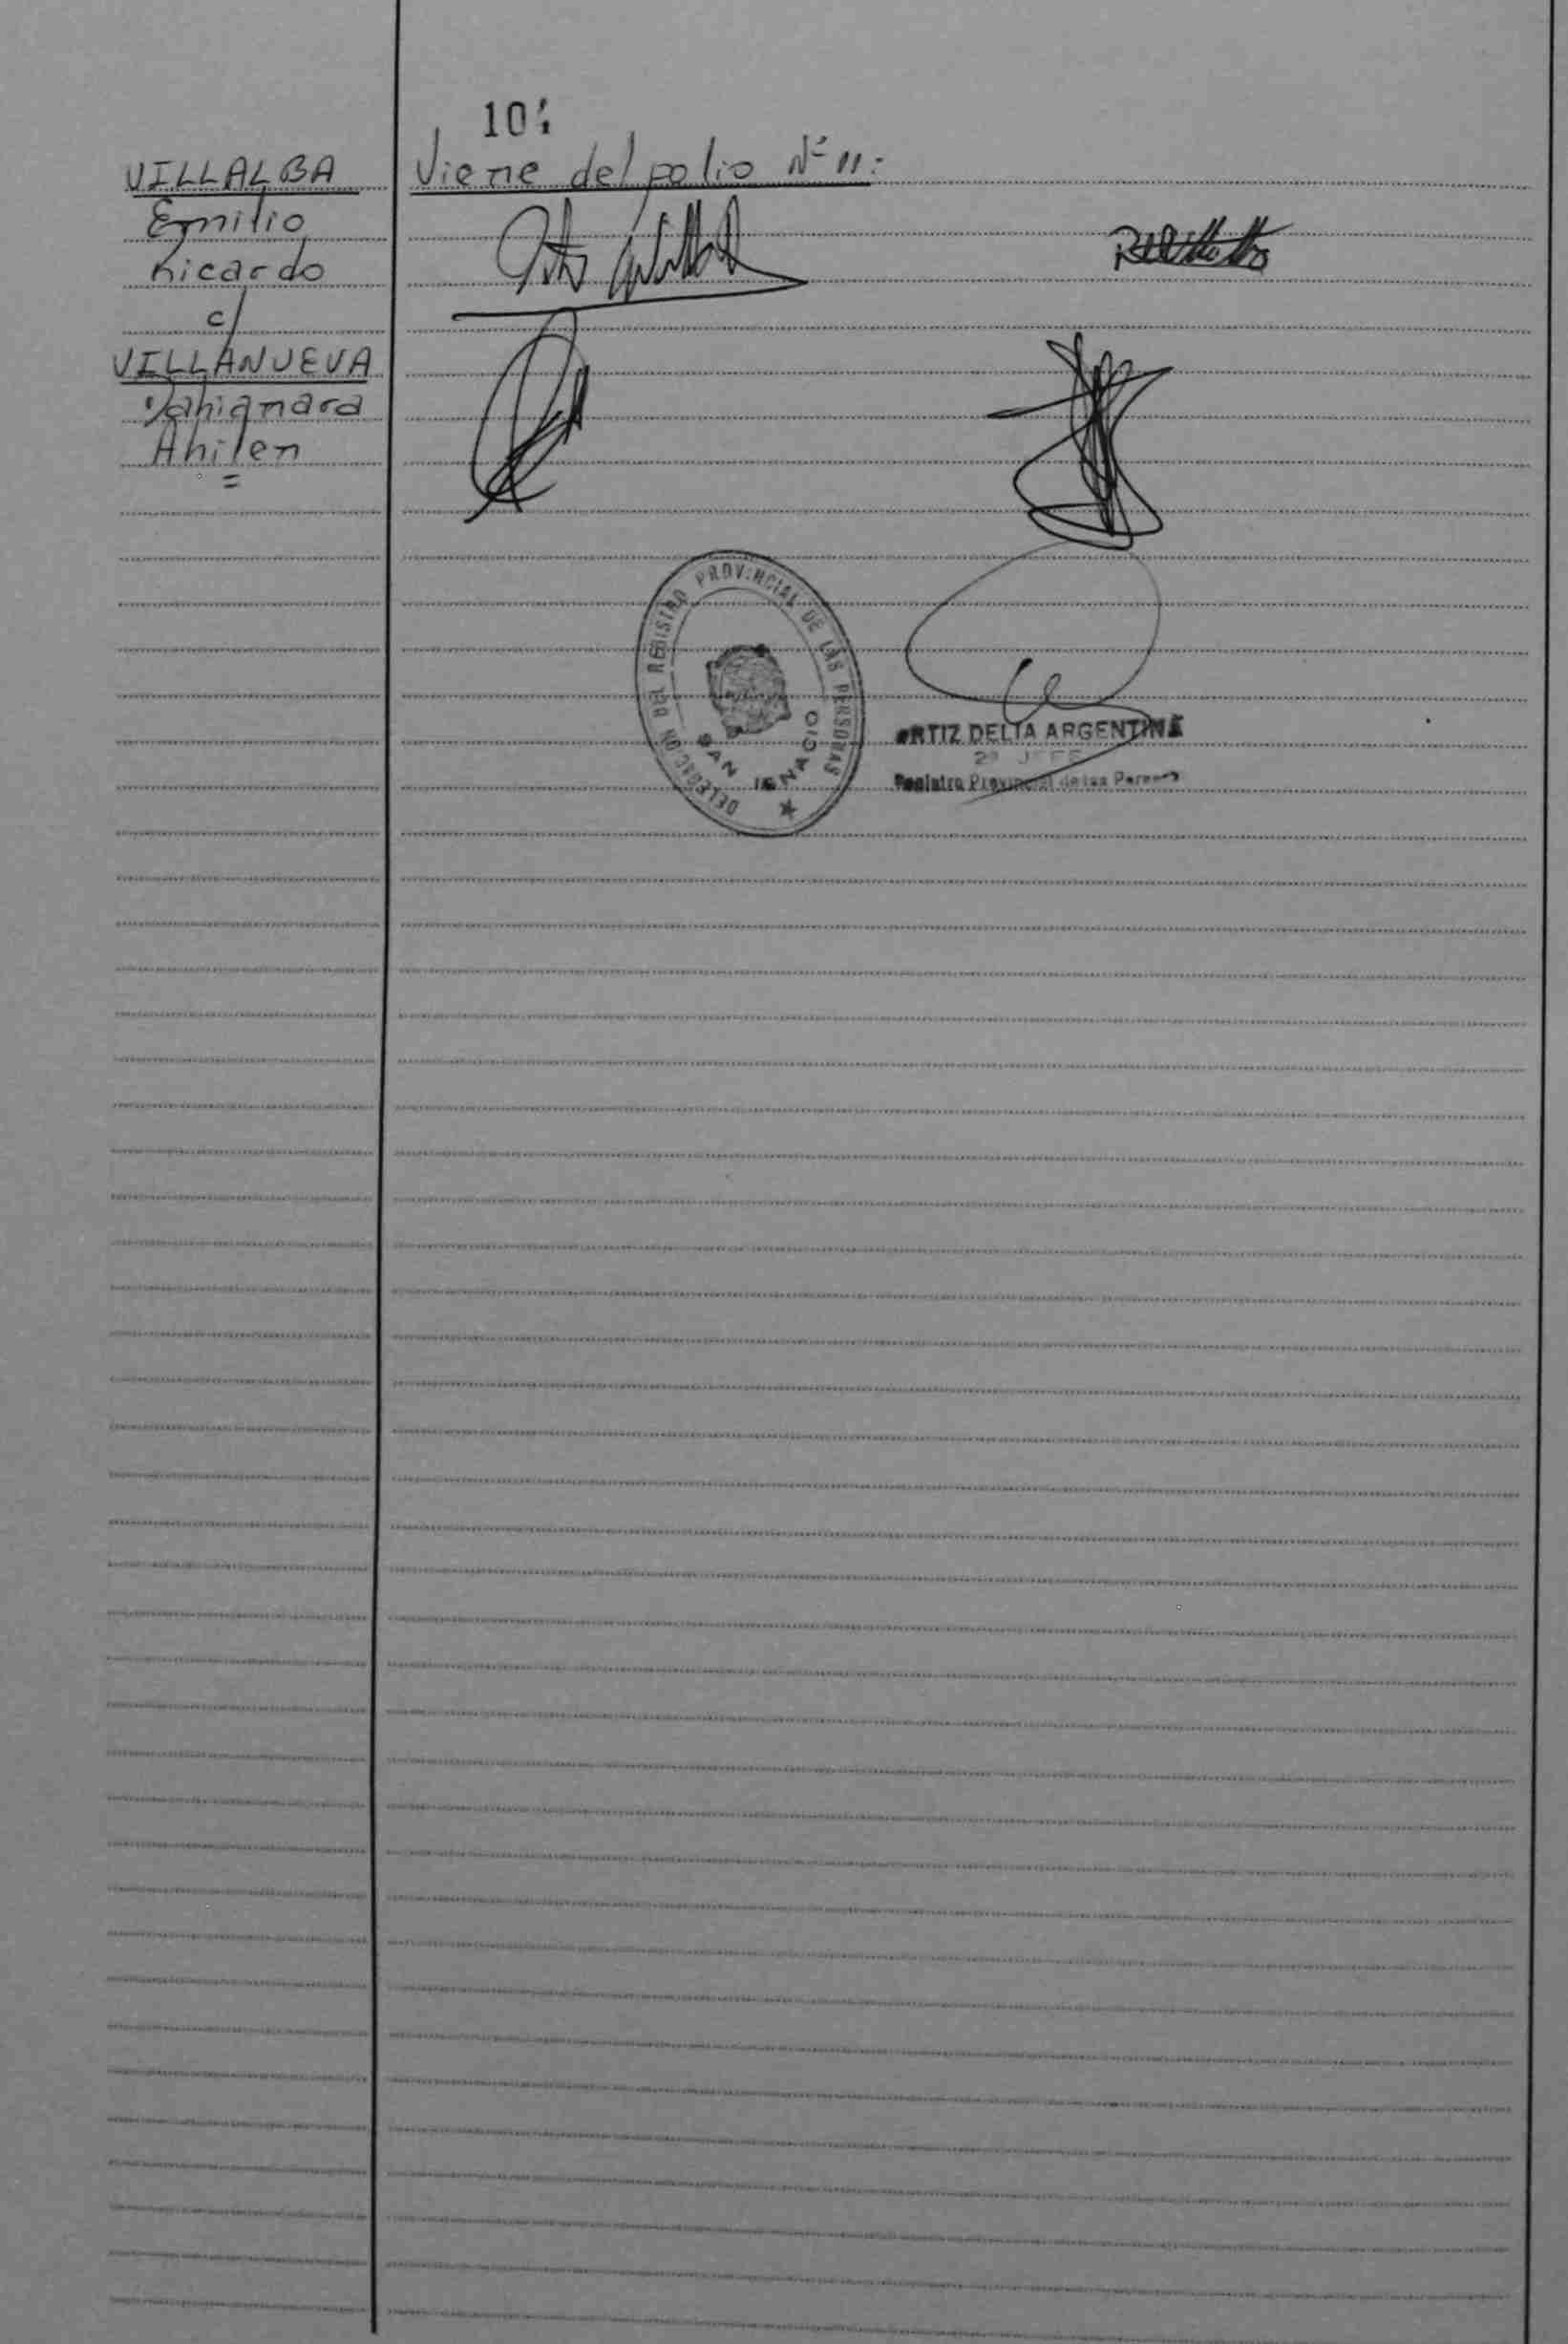 10
VILLALBA
Emilio
Ricardo
c/
VILLANUEVA
Dahianara
Ahilen
=
Viene del folio Nº 11:
DELEGACION DEL REGISTRO PROVINCIAL DE LAS PERSONAS
SAN IGNACIO
ORTIZ DELIA ARGENTINA
2º JEFE
Registro Provincial de las Personas